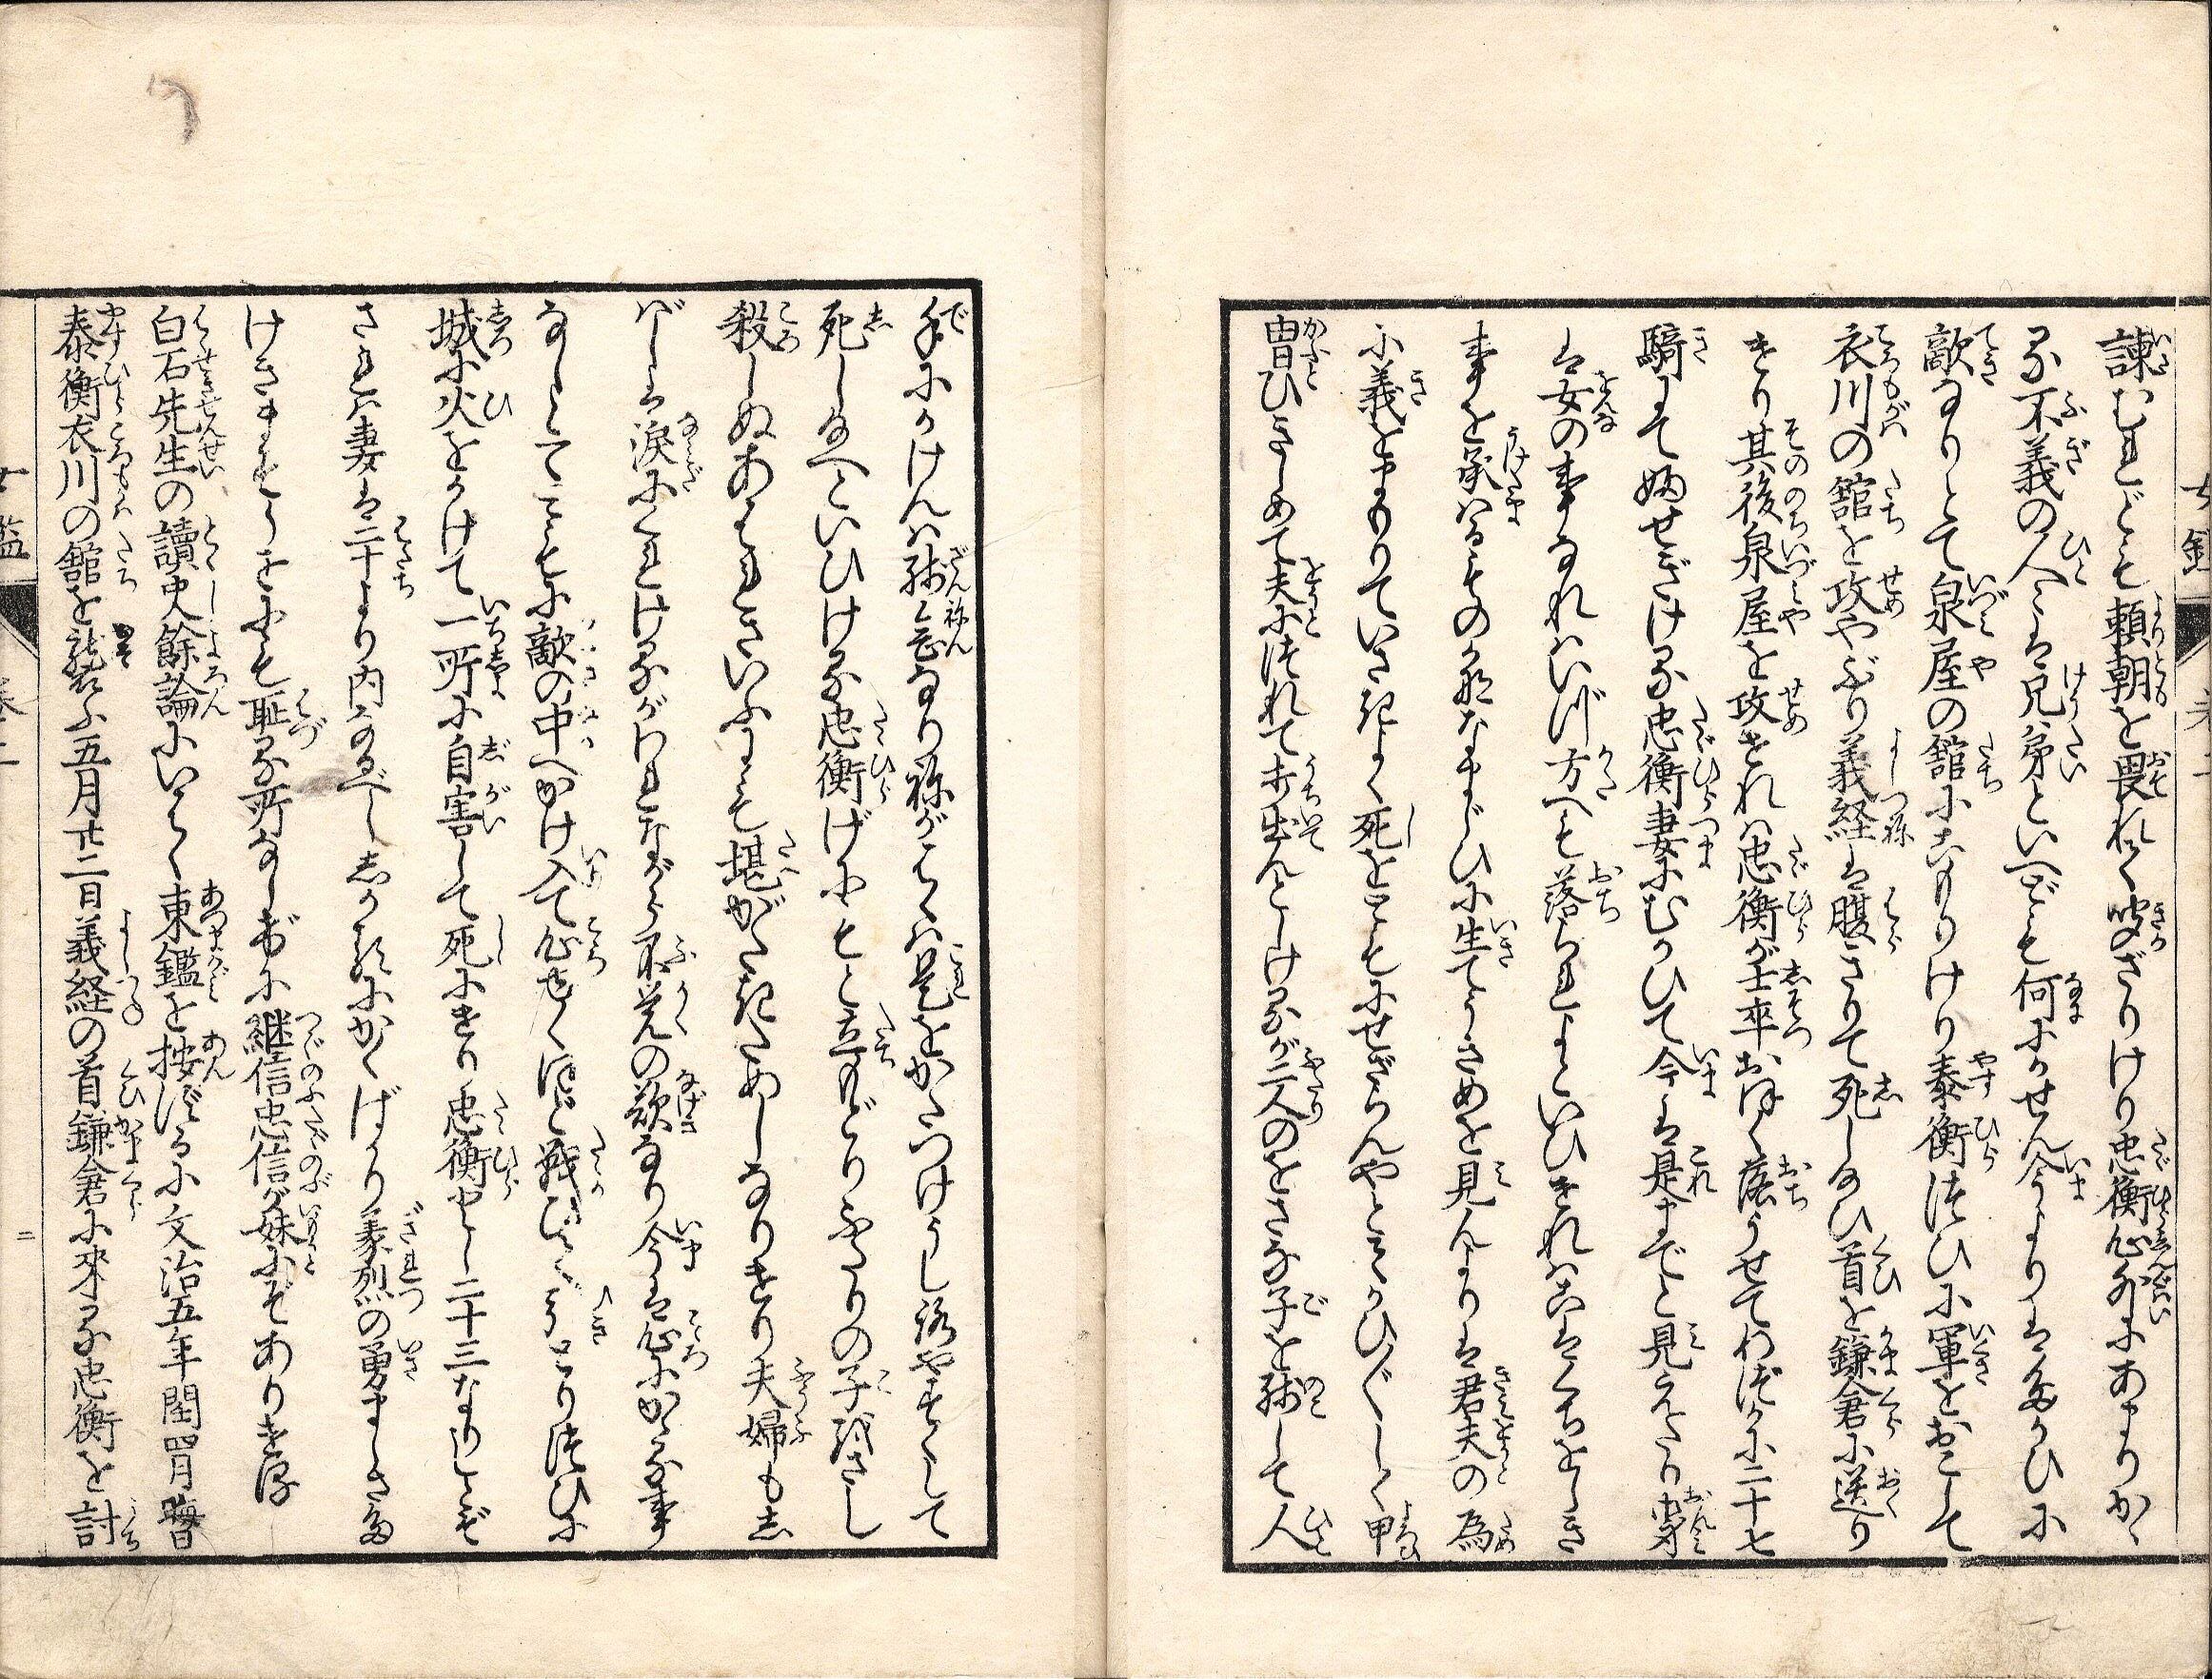 諫むれども頼朝を畏れて聞ざりけり忠衡心外にあまりかゝ
る不義の人々は兄弟といへども何にかせん今よりはたがひに
敵なりとて泉屋の舘にこもりけり泰衡つひに軍をおこして
衣川の舘を攻やぶり義経は腹きりて死しかひ首を鎌倉に送り
けり其後泉屋を攻ければ忠衡が士卒おほく落うせてわづかに二十七
騎にて防せぎける忠衡妻にむかひて今は是までと見えたり御身
は女の事なればいづ方へも落られよといひければこはくちをしき
事を承はるものかななまじひに生てうきめを見んより君夫の為
に義をまもりていさぎよく死をこそともにせざらんやとかひ〴〵しく甲
冑ひきしめて夫につれて打出んとしけるが二人のをさな子を残して人
手にかけんは残念なりねがはくは是をかたづけうしろやすくして
死し給へといひければ忠衡げにもと立もどりふたりの子ども刺し
殺しぬあはれといふにも堪がたきためしなりけり夫婦もし
ばしは涙にくれけるがわれながら不覚の歎なり今は心にかゝる事
なしとてともに敵の中へかけ入て心よくほど戦ひて引とりつひに
城に火をかけて一所に自害して死にけり忠衡とし二十三なりしとぞ
されば妻は二十より内なるべししかるにかくばかり義烈の勇ましき多
けきますらをにも恥る所なし げに継信忠信が妹にぞありける
白石先生の讀史餘論にいはく東鑑を按ずるに文治五年閏四月晦日
泰衡衣川の舘を襲ふ五月廿二日義経の首鎌倉に来る忠衡を討